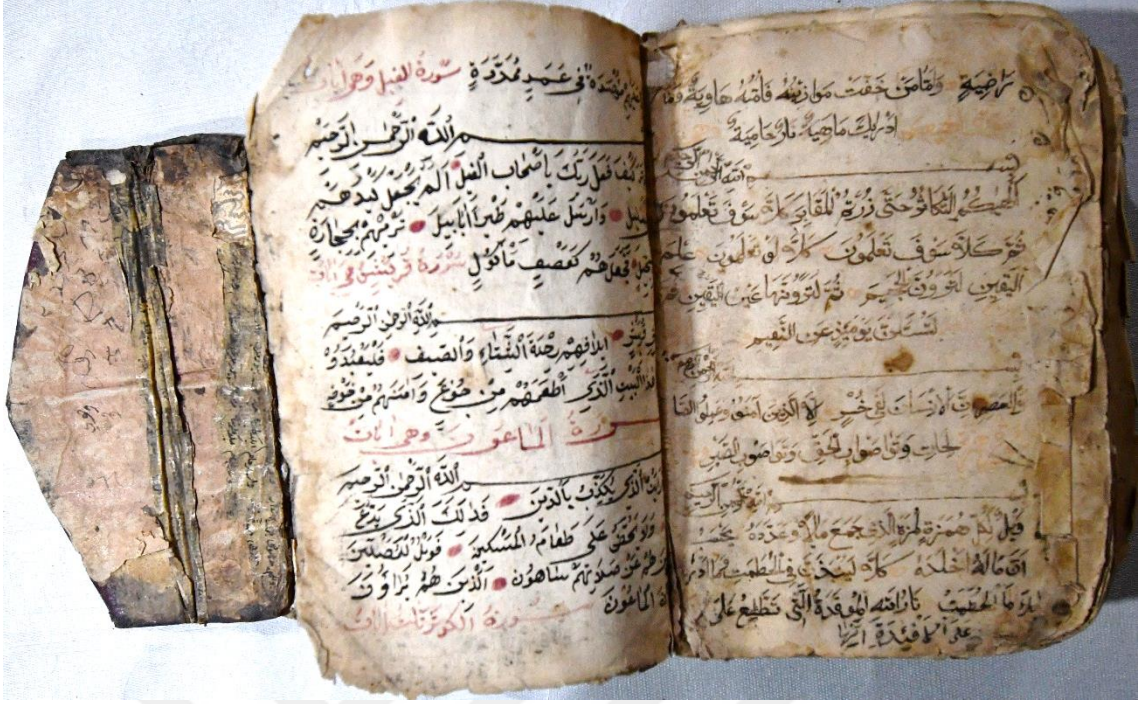 راضية واما من خفت موازينه فامه هاوية وما
ادريك ماهيه نار حامية
بسم الله الرحمن الرحيم
الهيكم التكاثر حتى زرتم المقابر كلا سوف تعلمون
ثم كلا سوف تعلمون كلا لو تعلمون علم
اليقين لترون الجحيم ثم لترونها عين اليقين ثم
لتسئلن يومئذ عن النعيم
بسم الله الرحمن الرحيم
والعصر ان الانسان لفي خسر الا الذين امنوا وعملوا الصا
لحات وتواصوا بالحق وتواصوا بالصبر
بسم الله الرحمن الرحيم
ويل لكل همزة لمزة الذي جمع مالا وعدده يحسب
ان ماله اخلده كلا لينبذن في الحطمة وما ادر
يك ما الحطمة نار الله الموقدة التي تطلع على
على الافئدة انها
فِي عَمَدٍ مُمَدَّدَةٍ سورة الفيل وهي ايات
اللّه الرَّحمٰن الرَّحيم
كَيْفَ فَعَلَ رَبُّكَ بِاَصْحَابِ الْفِيلِ اَلَمْ يَجْعَلْ كَيْدَهُمْ
وَاَرْسَلَ عَلَيْهِمْ طَيْرًا اَبَابِيلَ تَرْمِيهِمْ بِحِجَارَةٍ
فَجَعَلَهُمْ كَعَصْفٍ مَأْكُولٍ سورة قريش هي ايات
اللّه الرَّحمٰن الرَّحيم
قريش ايلافهم رحلة الشتاء والصيف فليعبدوا
البيت الذي اطعمهم من جوع وامنهم من خوف
سورة الماعون وهي ايات
اللّه الرَّحمٰن الرَّحيم
الذي يكذب بالدين فذلك الذي يدع
ولا يحض على طعام المسكين فويل للمصلين
هم عن صلاتهم ساهون الذين هم يراؤون
الماعون
سورة الكوثر ثلث ايات